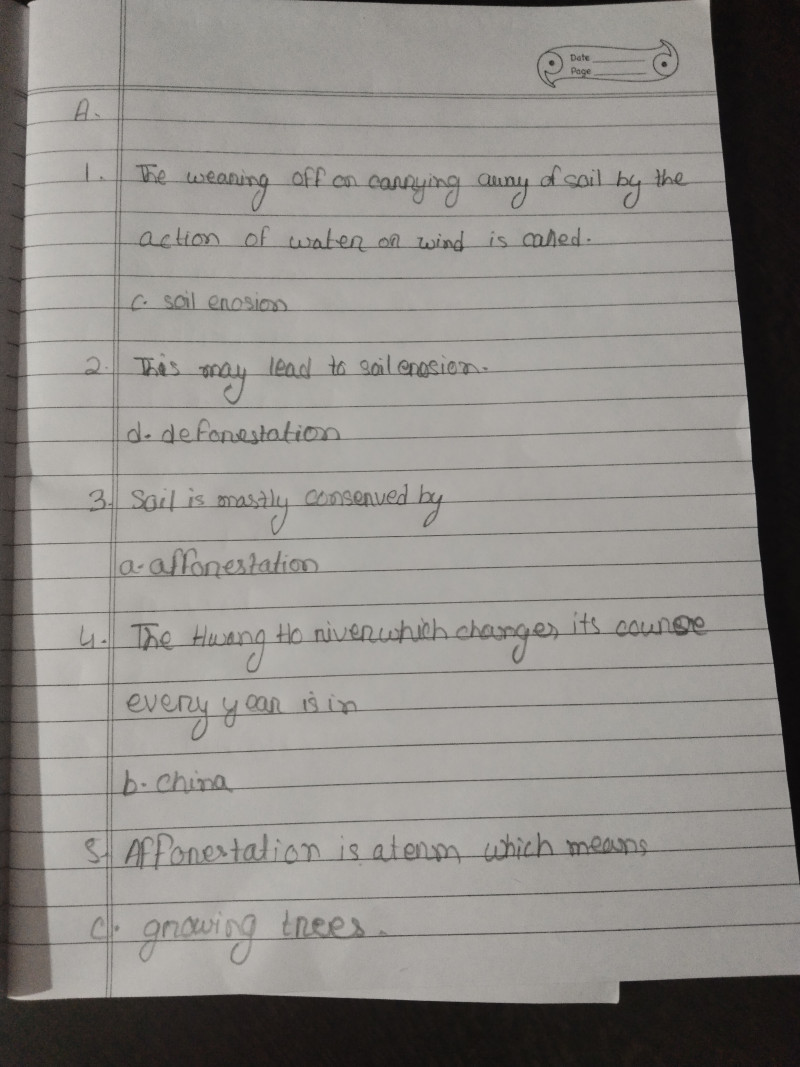 Date
Page
A.
1. The wearing off or carrying away of soil by the
action of water or wind is called.
c. soil erosion
2. This may lead to soil erosion.
d. deforestation
3. Soil is mostly conserved by
a. afforestation
4. The Hwang Ho river which changes its course
every year is in
b. China
5. Afforestation is a term which means
c. growing trees.